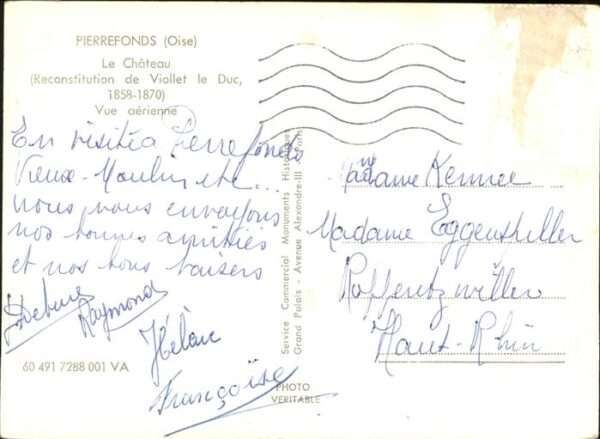 PIERREFONDS (Oise)
Le Château
(Reconstitution de Viollet le Duc,
1858-1870)
Vue aérienne
En visite à Pierrefonds
Vieux-Moulin etc...
nous vous envoyons
nos bonnes amitiés
et nos bons baisers
Raymond
Hélène
Françoise
60 491 7288 001 VA
Service Commercial Monuments Historiques
Grand Palais - Avenue Alexandre-III - Paris
PHOTO
VERITABLE
Madame
Madame Eggenspieller
Roffentzwiller
Haut-Rhin